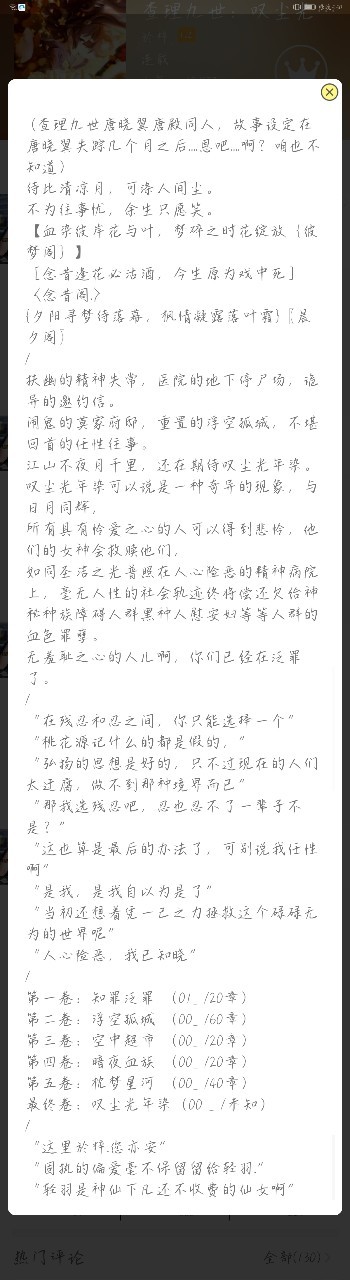 查理九世：叹尘光
（查理九世唐晓翼唐殿同人，故事设定在
唐晓翼失踪几个月之后....恩吧....啊？咱也不
知道）
待比清凉月，可涤人间尘。
不为往事忧，余生只愿笑。
【血染彼岸花与叶，梦碎之时花绽放｛彼
梦阁｝】
［念昔逢花必沽酒，今生原为戏中死］
〈念昔阁.〉
(夕阳寻梦待落幕，枫情凝露落叶霜)〖晨
夕阁〗
/
扶幽的精神失常，医院的地下停尸场，诡
异的邀约信。
闹鬼的莫家府邸，重置的浮空孤城，不堪
回首的任性往事。
江山不夜月千里，还在期待叹尘光年染。
叹尘光年染可以说是一种奇异的现象，与
日月同辉，
所有具有怜爱之心的人可以得到悲怜，他
们的女神会救赎他们，
如同圣洁之光普照在人心险恶的精神病院
上，毫无人性的社会轨迹终将偿还欠给神
秘种族障碍人群黑种人慰安妇等等人群的
血色罪孽。
无羞耻之心的人儿啊，你们已经在泛罪
了。
/
“在残忍和忍之间，你只能选择一个”
“桃花源记什么的都是假的，”
“弘扬的思想是好的，只不过现在的人们
太迂腐，做不到那种境界而已”
“那我选残忍吧，忍也忍不了一辈子不
是？”
“这也算是最后的办法了，可别说我任性
啊”
“是我，是我自以为是了”
“当初还想着凭一己之力拯救这个碌碌无
为的世界呢”
“人心险恶，我已知晓”
/
第一卷：知罪泛罪（01_/20章）
第二卷：浮空孤城（00_/60章）
第三卷：空中超市（00_/20章）
第四卷：暗夜血族（00_/20章）
第五卷：梳梦星河（00_/40章）
最终卷：叹尘光年染（00_/未知）
/
“这里於梓.您亦安”
“固执的偏爱毫不保留留给轻羽.”
“轻羽是神仙下凡还不收费的仙女啊”
热门评论
全部(130)